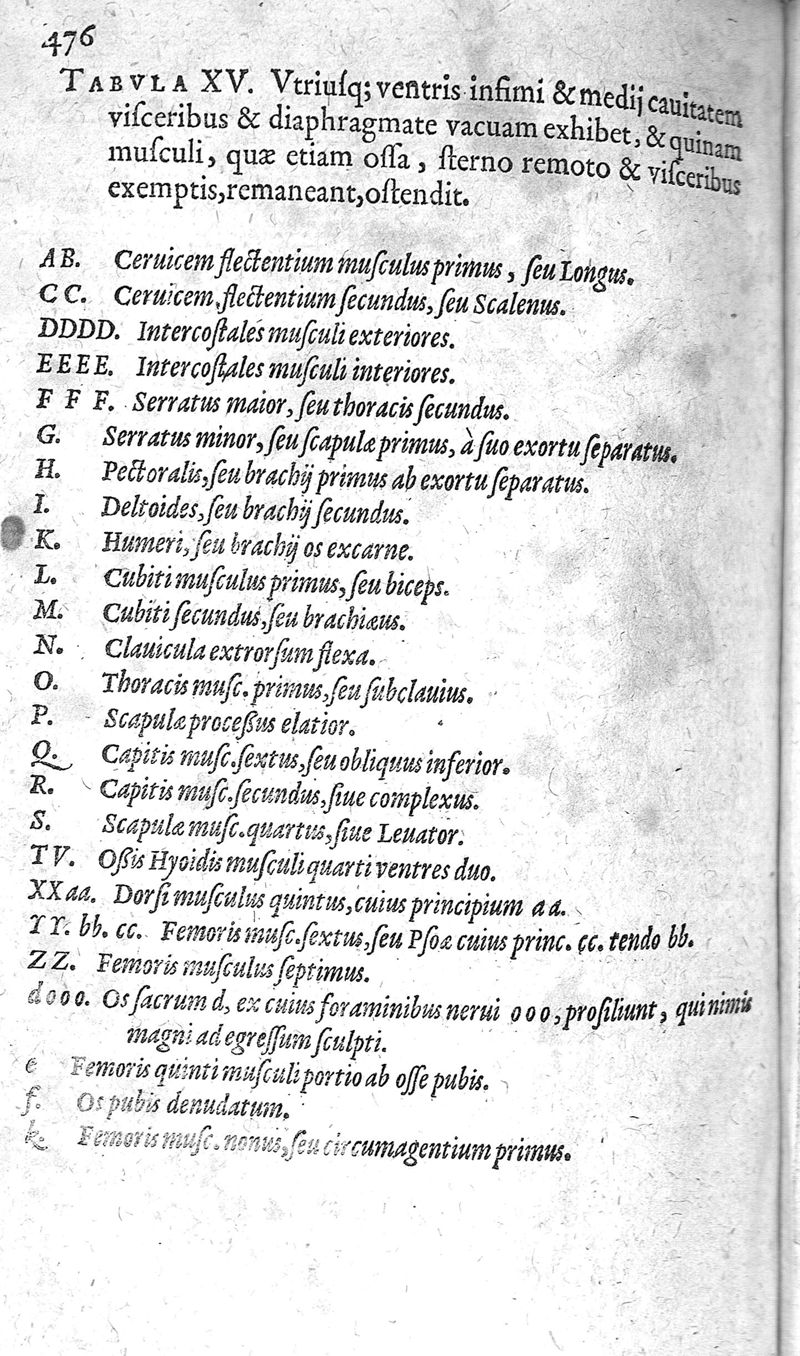 476
TABVLA XV. Vtriuſq; ventris infimi & medij cauitatem
viſceribus & diaphragmate vacuam exhibet, & quinam
muſculi, quæ etiam oſſa, ſterno remoto & viſceribus
exemptis, remaneant, oſtendit.
AB. Ceruicem flectentium muſculus primus, ſeu Longus.
CC. Ceruicem, flectentium ſecundus, ſeu Scalenus.
DDDD. Intercoſtales muſculi exteriores.
EEEE. Intercoſtales muſculi interiores.
F F F. Serratus maior, ſeu thoracis ſecundus.
G. Serratus minor, ſeu ſcapulæ primus, à ſuo exortu ſeparatus.
H. Pectoralis, ſeu brachij primus ab exortu ſeparatus.
I. Deltoides, ſeu brachij ſecundus.
K. Humeri, ſeu brachij os excarne.
L. Cubiti muſculus primus, ſeu biceps.
M. Cubiti ſecundus, ſeu brachiæus.
N. Clauicula extrorſum flexa.
O. Thoracis muſc. primus, ſeu ſubclauius.
P. Scapulæ proceſſus elatior.
Q. Capitis muſc. ſextus, ſeu obliquus inferior.
R. Capitis muſc. ſecundus, ſiue complexus.
S. Scapulæ muſc. quartus, ſiue Leuator.
TV. Oſſis Hyoidis muſculi quarti ventres duo.
XXaa. Dorſi muſculus quintus, cuius principium aa.
YY. bb. cc. Femoris muſc. ſextus, ſeu Pſoæ cuius princ. cc. tendo bb.
ZZ. Femoris muſculus ſeptimus.
dooo. Os ſacrum d, ex cuius foraminibus nerui ooo, proſiliunt, qui nimis
magni ad egreſſum ſculpti.
e Femoris quinti muſculi portio ab oſſe pubis.
f. Os pubis denudatum.
k. Femoris muſc. nonus, ſeu circumagentium primus.